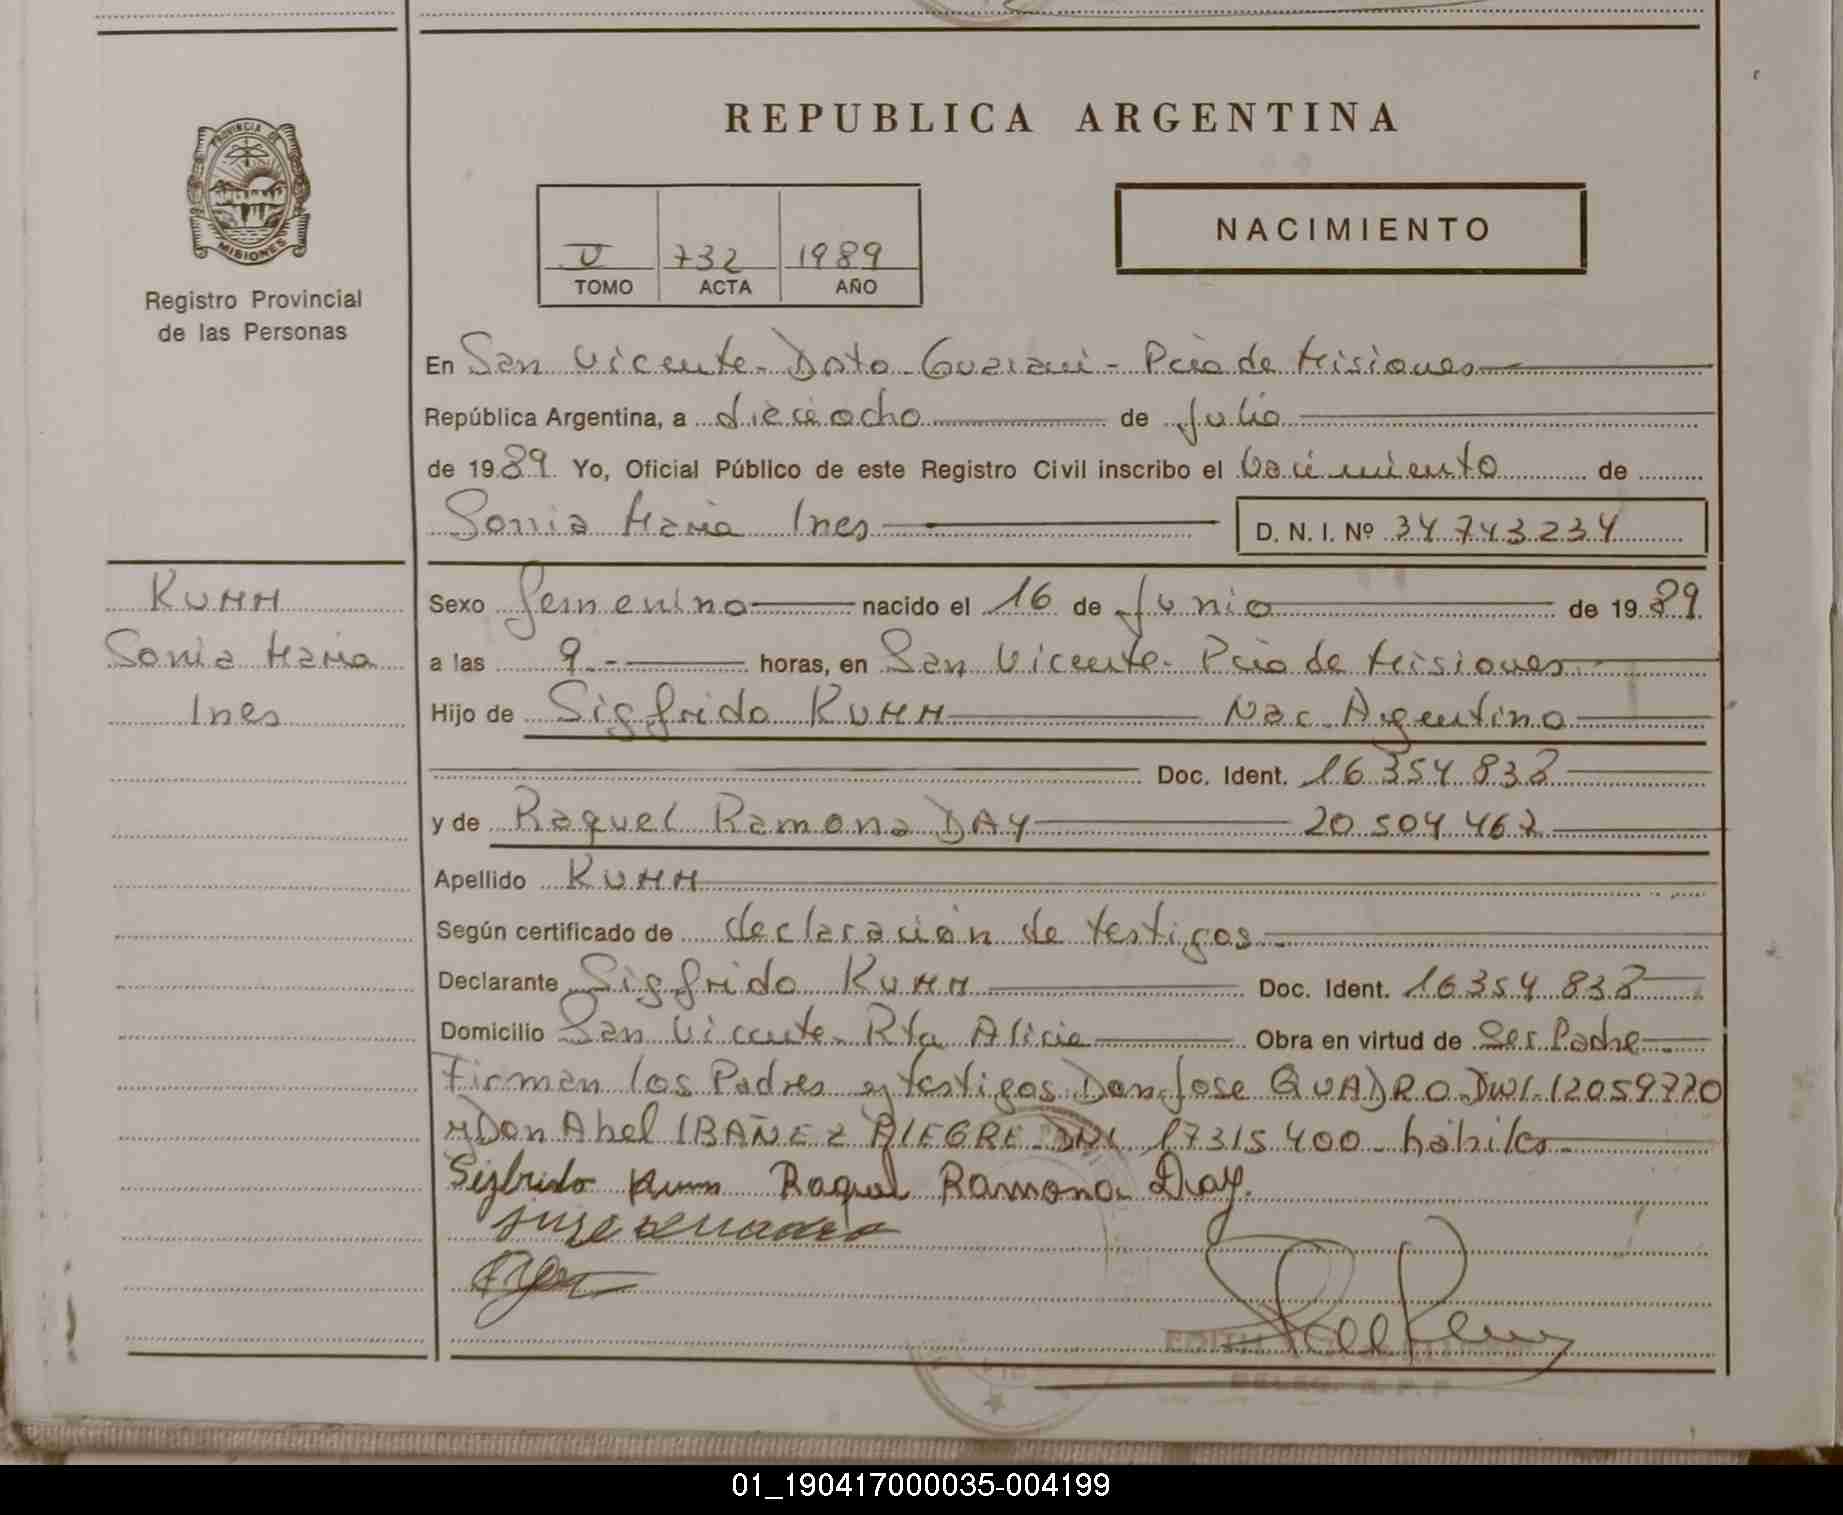 REPUBLICA ARGENTINA
PROVINCIA DE
MISIONES
Registro Provincial
de las Personas
V 732 1989
TOMO ACTA AÑO
NACIMIENTO
En San Vicente - Dpto Guarani - Pcia de Misiones
República Argentina, a dieciocho de Julio
de 1989 Yo, Oficial Público de este Registro Civil inscribo el Nacimiento de
Sonia Maria Ines D. N. I. Nº 34 743 234
KUHN
Sonia Maria
Ines
Sexo femenino nacido el 16 de Junio de 1989
a las 9.- horas, en San Vicente - Pcia de Misiones
Hijo de Sigfrido KUHN Nac. Argentino
Doc. Ident. 16 354 838
y de Raquel Ramona DAY 20 504 462
Apellido KUHN
Según certificado de declaración de testigos
Declarante Sigfrido KUHN Doc. Ident. 16 354 838
Domicilio San Vicente - Pta Alicia Obra en virtud de Ser Padre
Firman los Padres y testigos Don Jose QUADRO DNI. 12059770
y Don Abel IBAÑEZ ALEGRE DNI 17315 400 - habiles
Sigfrido Kuhn Raquel Ramona Day.
EDITH
DELEG. R. P. P
01_190417000035-004199